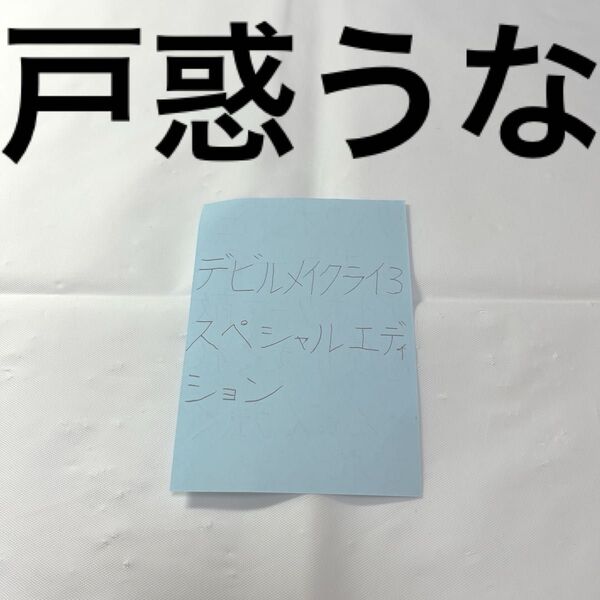 戸惑うな
デビルメイクライ3
スペシャルエディ
ション